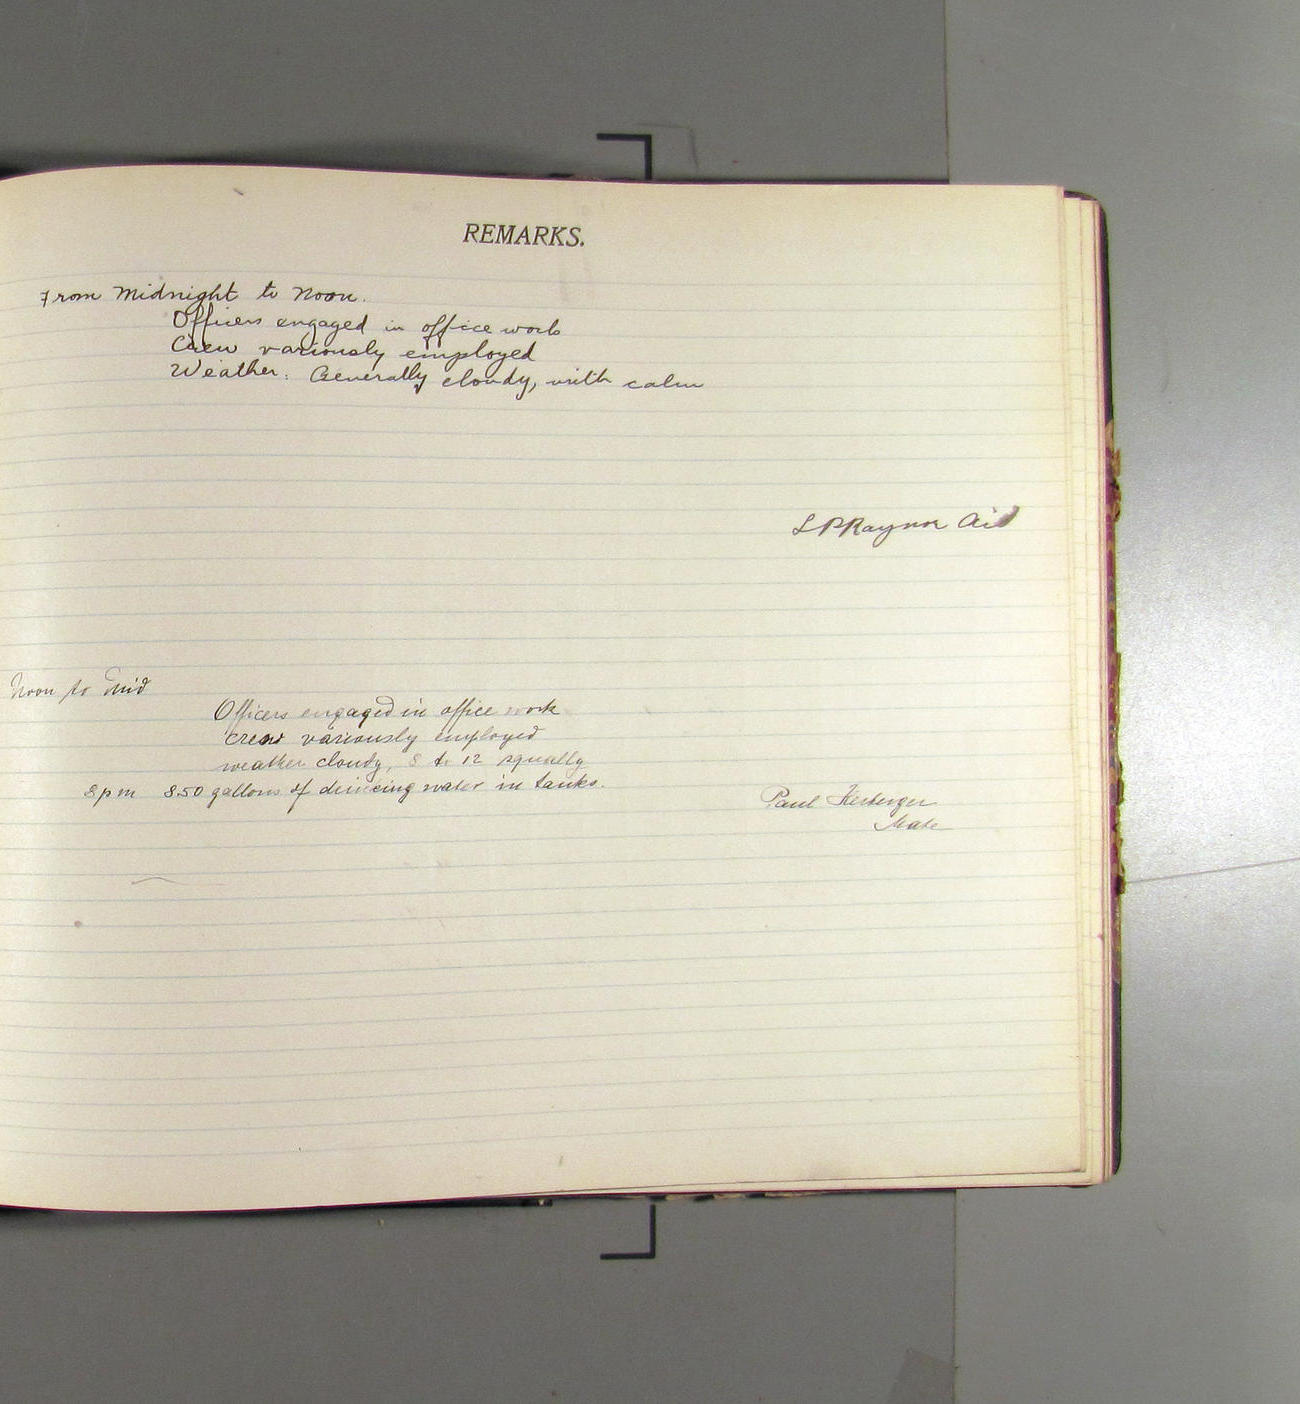 REMARKS.
From Midnight to Noon.
Officers engaged in office work
Crew variously employed
Weather: Generally cloudy, with calm
L P Raynor Aid
Noon to Mid
Officers engaged in office work
crew variously employed
weather cloudy, 8 to 12 squally
8 pm 850 gallons of drinking water in tanks.
Paul
Mate